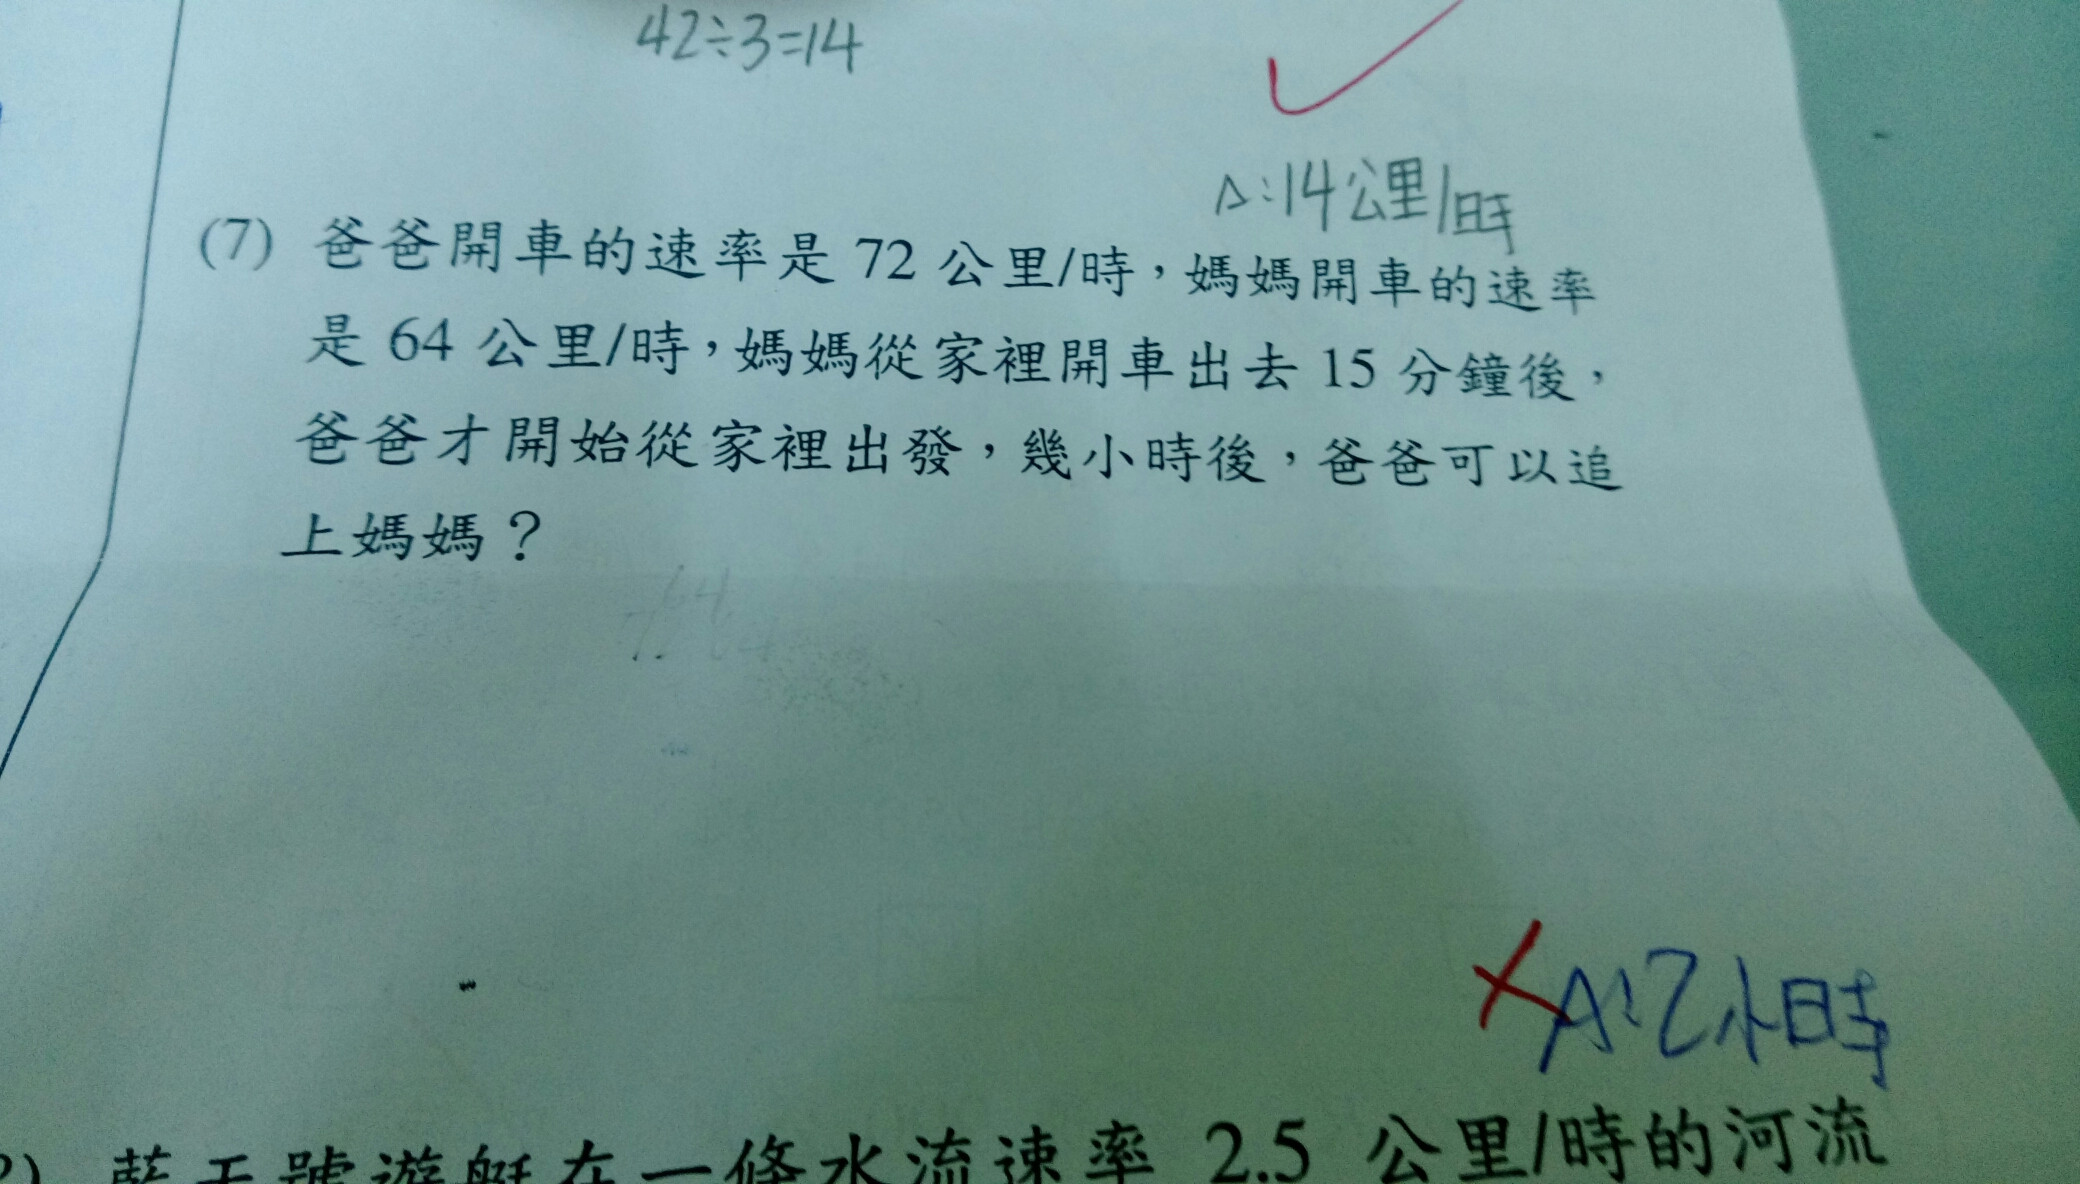 42÷3=14
A:14公里/時
(7) 爸爸開車的速率是 72 公里/時，媽媽開車的速率
是 64 公里/時，媽媽從家裡開車出去 15 分鐘後，
爸爸才開始從家裡出發，幾小時後，爸爸可以追
上媽媽？
A:2小時
藍天號遊艇在一條水流速率 2.5 公里/時的河流